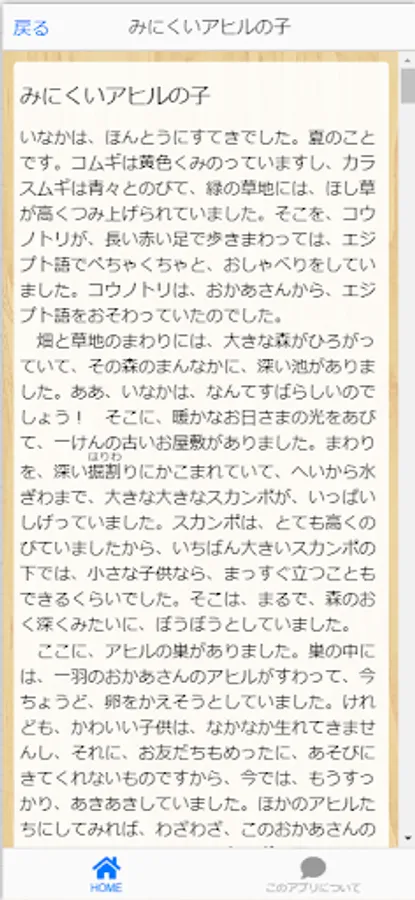 戻る
みにくいアヒルの子
みにくいアヒルの子
いなかは、ほんとうにすてきでした。夏のこと
です。コムギは黄色くみのっていますし、カラ
スムギは青々とのびて、緑の草地には、ほし草
が高くつみ上げられていました。そこを、コウ
ノトリが、長い赤い足で歩きまわっては、エジ
プト語でぺちゃくちゃと、おしゃべりをしてい
ました。コウノトリは、おかあさんから、エジ
プト語をおそわっていたのでした。
畑と草地のまわりには、大きな森がひろがっ
ていて、その森のまんなかに、深い池がありま
した。ああ、いなかは、なんてすばらしいので
しょう！　そこに、暖かなお日さまの光をあび
て、一けんの古いお屋敷がありました。まわり
はりわ
を、深い掘割りにかこまれていて、へいから水
ぎわまで、大きな大きなスカンポが、いっぱい
しげっていました。スカンポは、とても高くの
びていましたから、いちばん大きいスカンポの
下では、小さな子供なら、まっすぐ立つことも
できるくらいでした。そこは、まるで、森のお
く深くみたいに、ぼうぼうとしていました。
ここに、アヒルの巣がありました。巣の中に
は、一羽のおかあさんのアヒルがすわって、今
ちょうど、卵をかえそうとしていました。けれ
ども、かわいい子供は、なかなか生れてきませ
んし、それに、お友だちもめったに、あそびに
きてくれないものですから、今では、もうすっ
かり、あきあきしていました。ほかのアヒルた
ちにしてみれば、わざわざ、このおかあさんの
HOME
このアプリについて